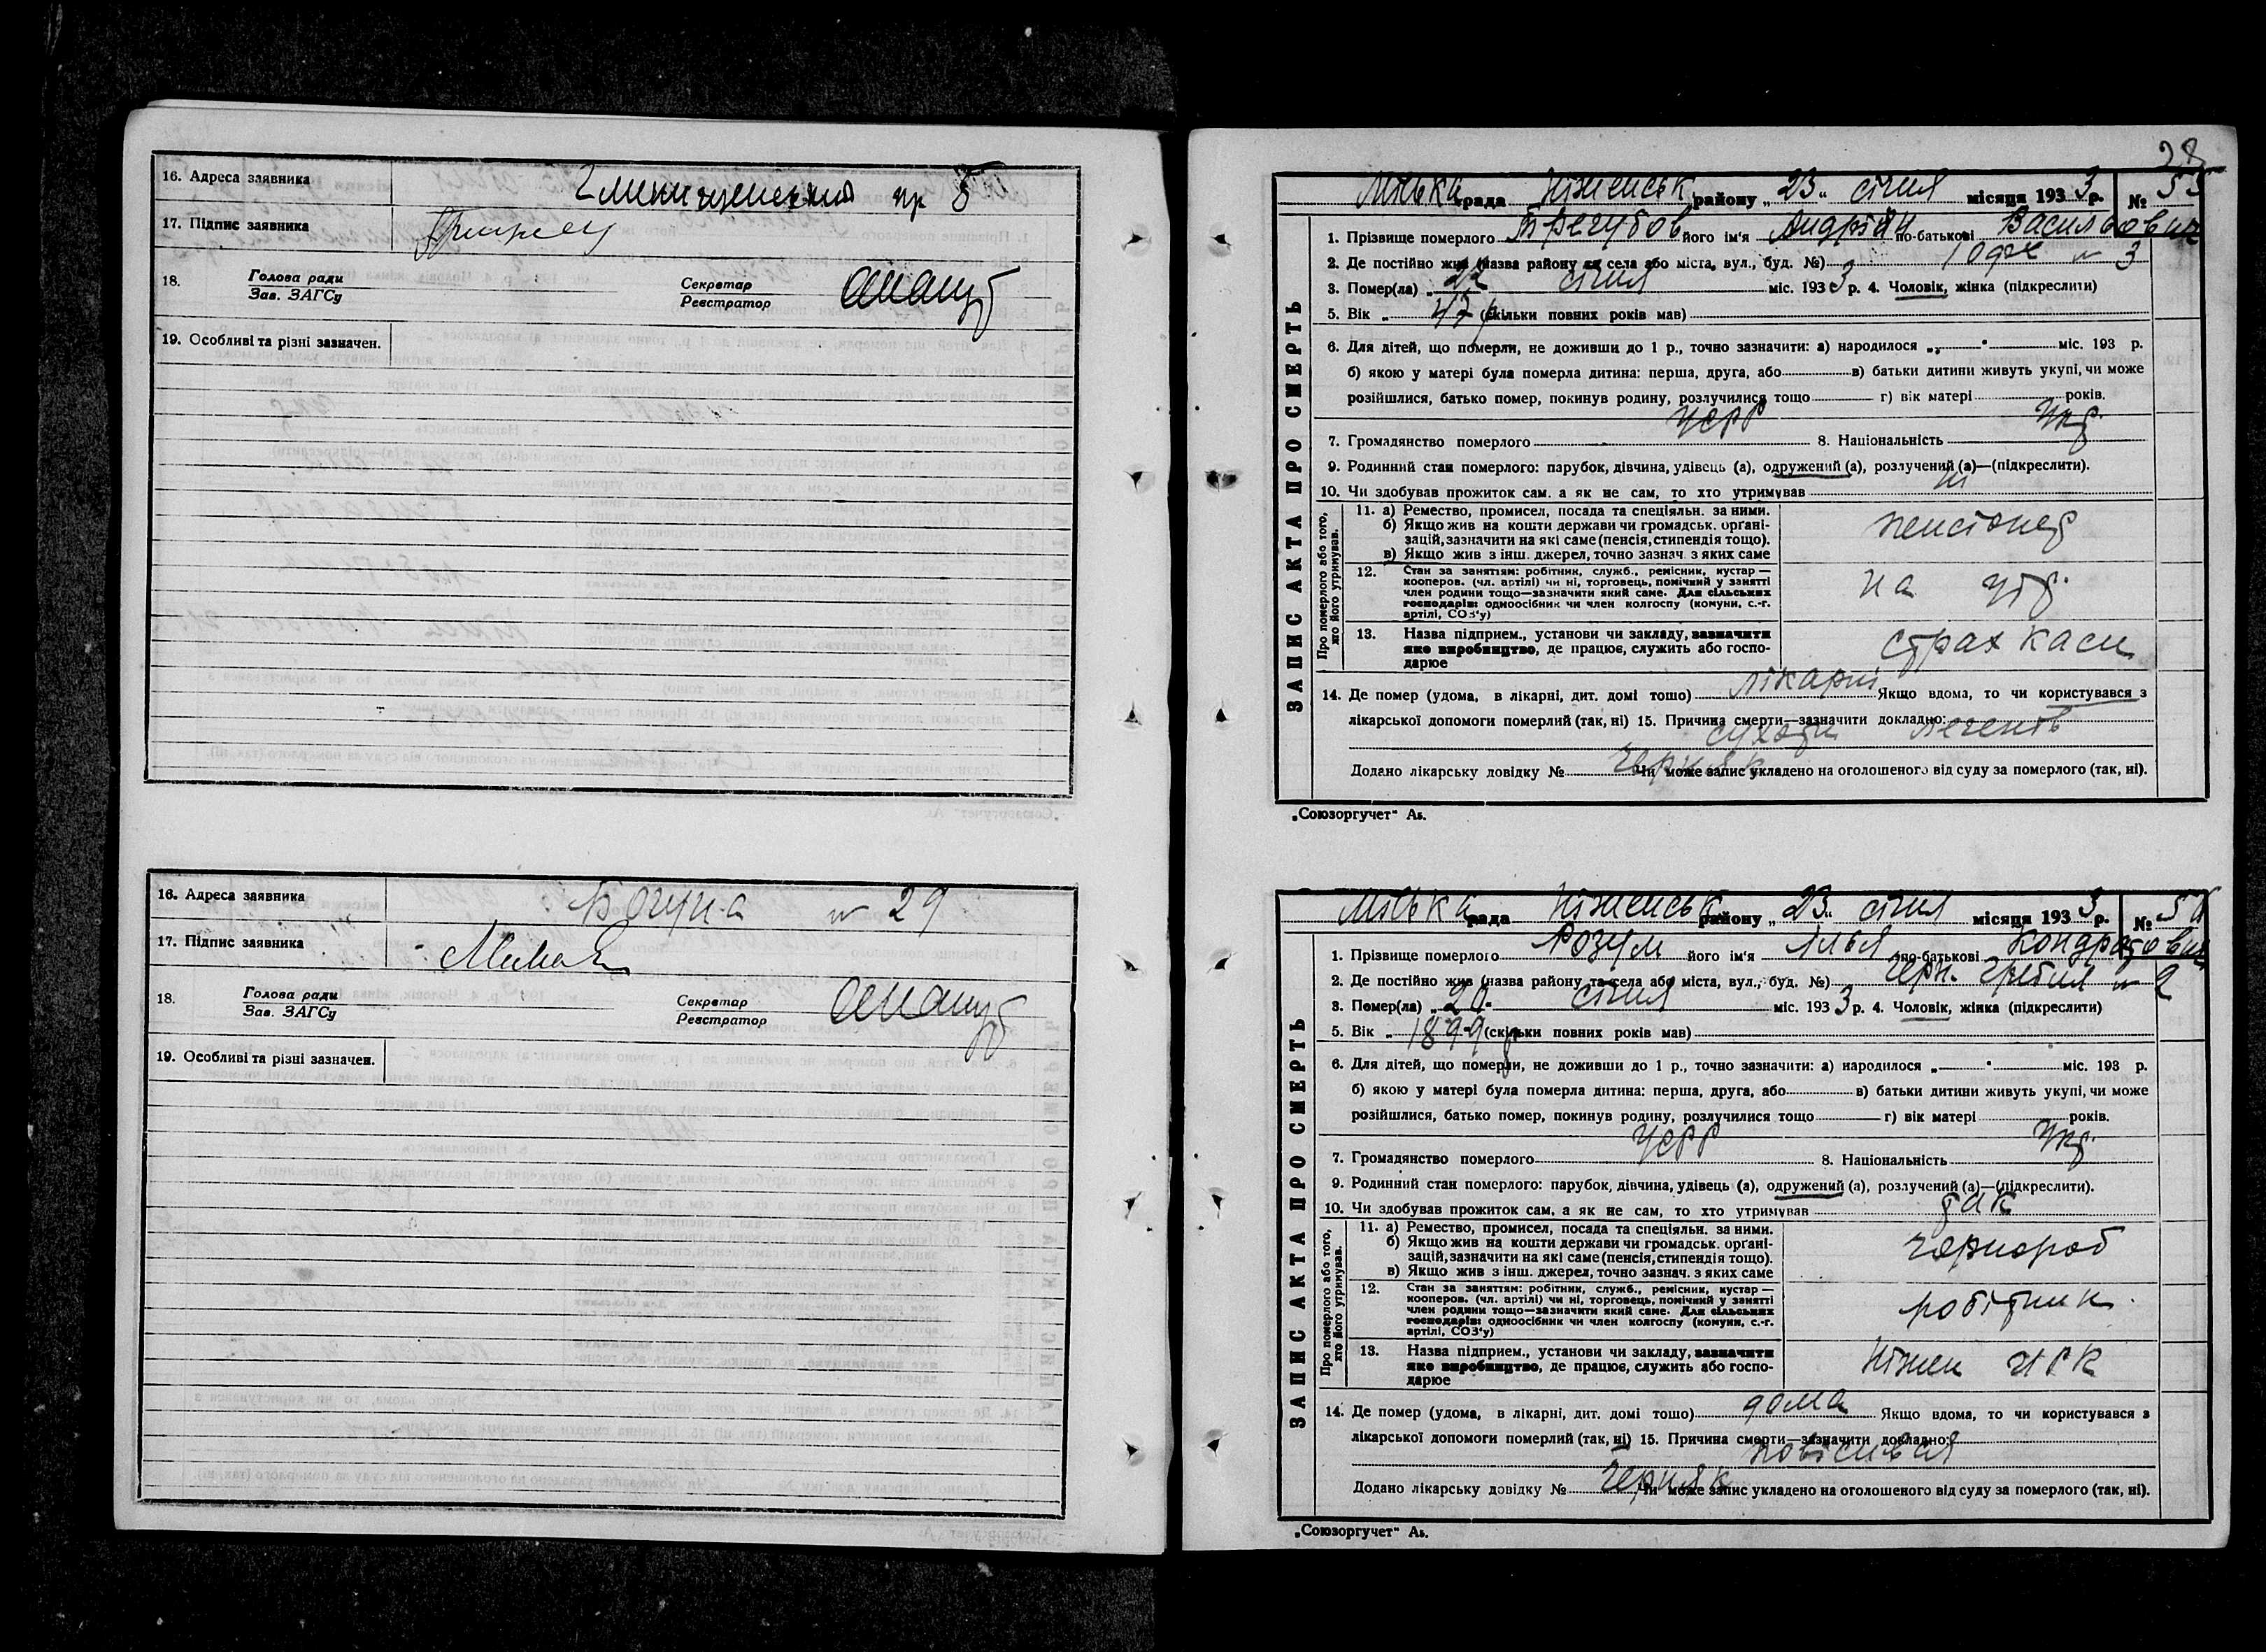 16. Адреса заявника
17. Підпис заявника
18. Голова ради
Зав. ЗАГСу
Секретар
Реєстратор
19. Особливі та різні зазначен.
16. Адреса заявника Богуна № 29
17. Підпис заявника
18. Голова ради
Зав. ЗАГСу
Секретар
Реєстратор
19. Особливі та різні зазначен.
28
ЗАПИС АКТА ПРО СМЕРТЬ
Міська рада Ніженськ району „23“ січня місяця 1933 р. № 55
1. Прізвище померлого Трегубов його ім'я Андрій по-батькові Васильович
2. Де постійно жив (назва району та села або міста, вул., буд. №) № 3
3. Помер(ла) „22 січня міс. 1933 р. 4. Чоловік, жінка (підкреслити)
5. Вік „ 47 р (скільки повних років мав)
6. Для дітей, що померли, не доживши до 1 р., точно зазначити: а) народилося „ “ міс. 193 р.
б) якою у матері була померла дитина: перша, друга, або в) батьки дитини живуть укупі, чи може
розійшлися, батько помер, покинув родину, розлучилися тощо г) вік матері років.
7. Громадянство померлого УСРР 8. Національність Укр.
9. Родинний стан померлого: парубок, дівчина, удівець (а), одружений (а), розлучений (а)—(підкреслити).
10. Чи здобував прожиток сам, а як не сам, то хто утримував ні
Про померлого або того, хто його утримував.
11. а) Ремество, промисел, посада та спеціяльн. за ними.
б) Якщо жив на кошти держави чи громадськ. органі-
зацій, зазначити на які саме (пенсія, стипендія тощо).
в) Якщо жив з інш. джерел, точно зазнач. з яких саме
пенсіонер
12. Стан за заняттям: робітник, служб., ремісник, кустар—
кооперов. (чл. артілі) чи ні, торговець, помічний у занятті
член родини тощо—зазначити який саме. Для сільських
господарів: одноосібник чи член колгоспу (комуни, с.-г.
артілі, СОЗ'у)
на утр.
13. Назва підприєм., установи чи закладу, зазначити
яке виробництво, де працює, служить або госпо-
дарює
страх каси
14. Де помер (удома, в лікарні, дит. домі тощо) лікарні Якщо вдома, то чи користувався з
лікарської допомоги померлий (так, ні) 15. Причина смерти—зазначити докладно:
сухоти легенів
Додано лікарську довідку № Черняк Чи може запис укладено на оголошеного від суду за померлого (так, ні).
„Союзоргучет“ Аь.
ЗАПИС АКТА ПРО СМЕРТЬ
Міська рада Ніженськ району „23“ січня місяця 1933 р. № 56
1. Прізвище померлого Розум його ім'я Ілья по-батькові Кондратович
2. Де постійно жив (назва району та села або міста, вул., буд. №) Черн. Гребля № 2
3. Помер(ла) „20 січня міс. 1933 р. 4. Чоловік, жінка (підкреслити)
5. Вік „ 1899 р (скільки повних років мав)
6. Для дітей, що померли, не доживши до 1 р., точно зазначити: а) народилося „ “ міс. 193 р.
б) якою у матері була померла дитина: перша, друга, або в) батьки дитини живуть укупі, чи може
розійшлися, батько помер, покинув родину, розлучилися тощо г) вік матері років.
7. Громадянство померлого УСРР 8. Національність Укр.
9. Родинний стан померлого: парубок, дівчина, удівець (а), одружений (а), розлучений (а)—(підкреслити).
10. Чи здобував прожиток сам, а як не сам, то хто утримував так
Про померлого або того, хто його утримував.
11. а) Ремество, промисел, посада та спеціяльн. за ними.
б) Якщо жив на кошти держави чи громадськ. органі-
зацій, зазначити на які саме (пенсія, стипендія тощо).
в) Якщо жив з інш. джерел, точно зазнач. з яких саме
чернороб
12. Стан за заняттям: робітник, служб., ремісник, кустар—
кооперов. (чл. артілі) чи ні, торговець, помічний у занятті
член родини тощо—зазначити який саме. Для сільських
господарів: одноосібник чи член колгоспу (комуни, с.-г.
артілі, СОЗ'у)
робітник.
13. Назва підприєм., установи чи закладу, зазначити
яке виробництво, де працює, служить або госпо-
дарює
Ніжен
14. Де помер (удома, в лікарні, дит. домі тощо) дома Якщо вдома, то чи користувався з
лікарської допомоги померлий (так, ні) 15. Причина смерти—зазначити докладно:
повісився
Додано лікарську довідку № Черняк Чи може запис укладено на оголошеного від суду за померлого (так, ні).
„Союзоргучет“ Аь.